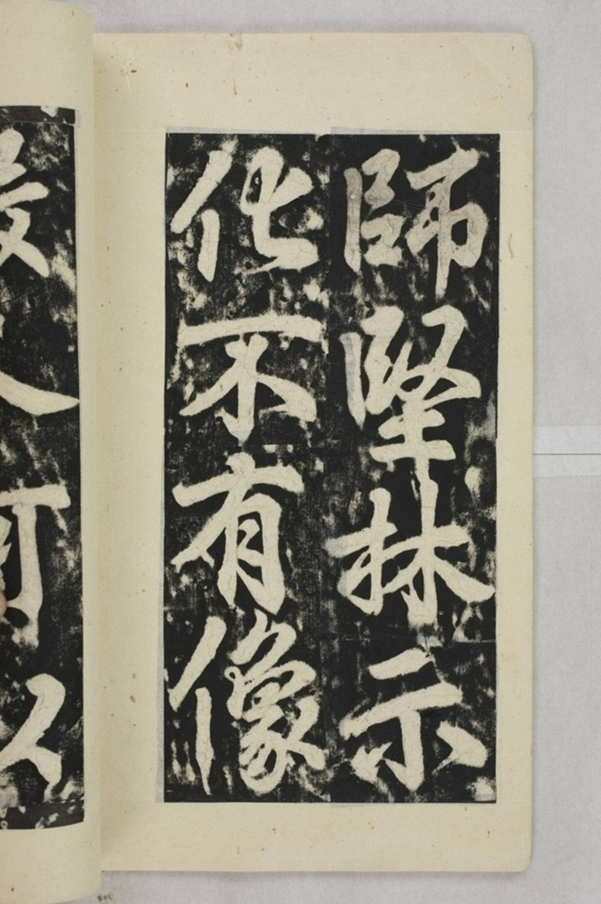 師堅林示
化不有像